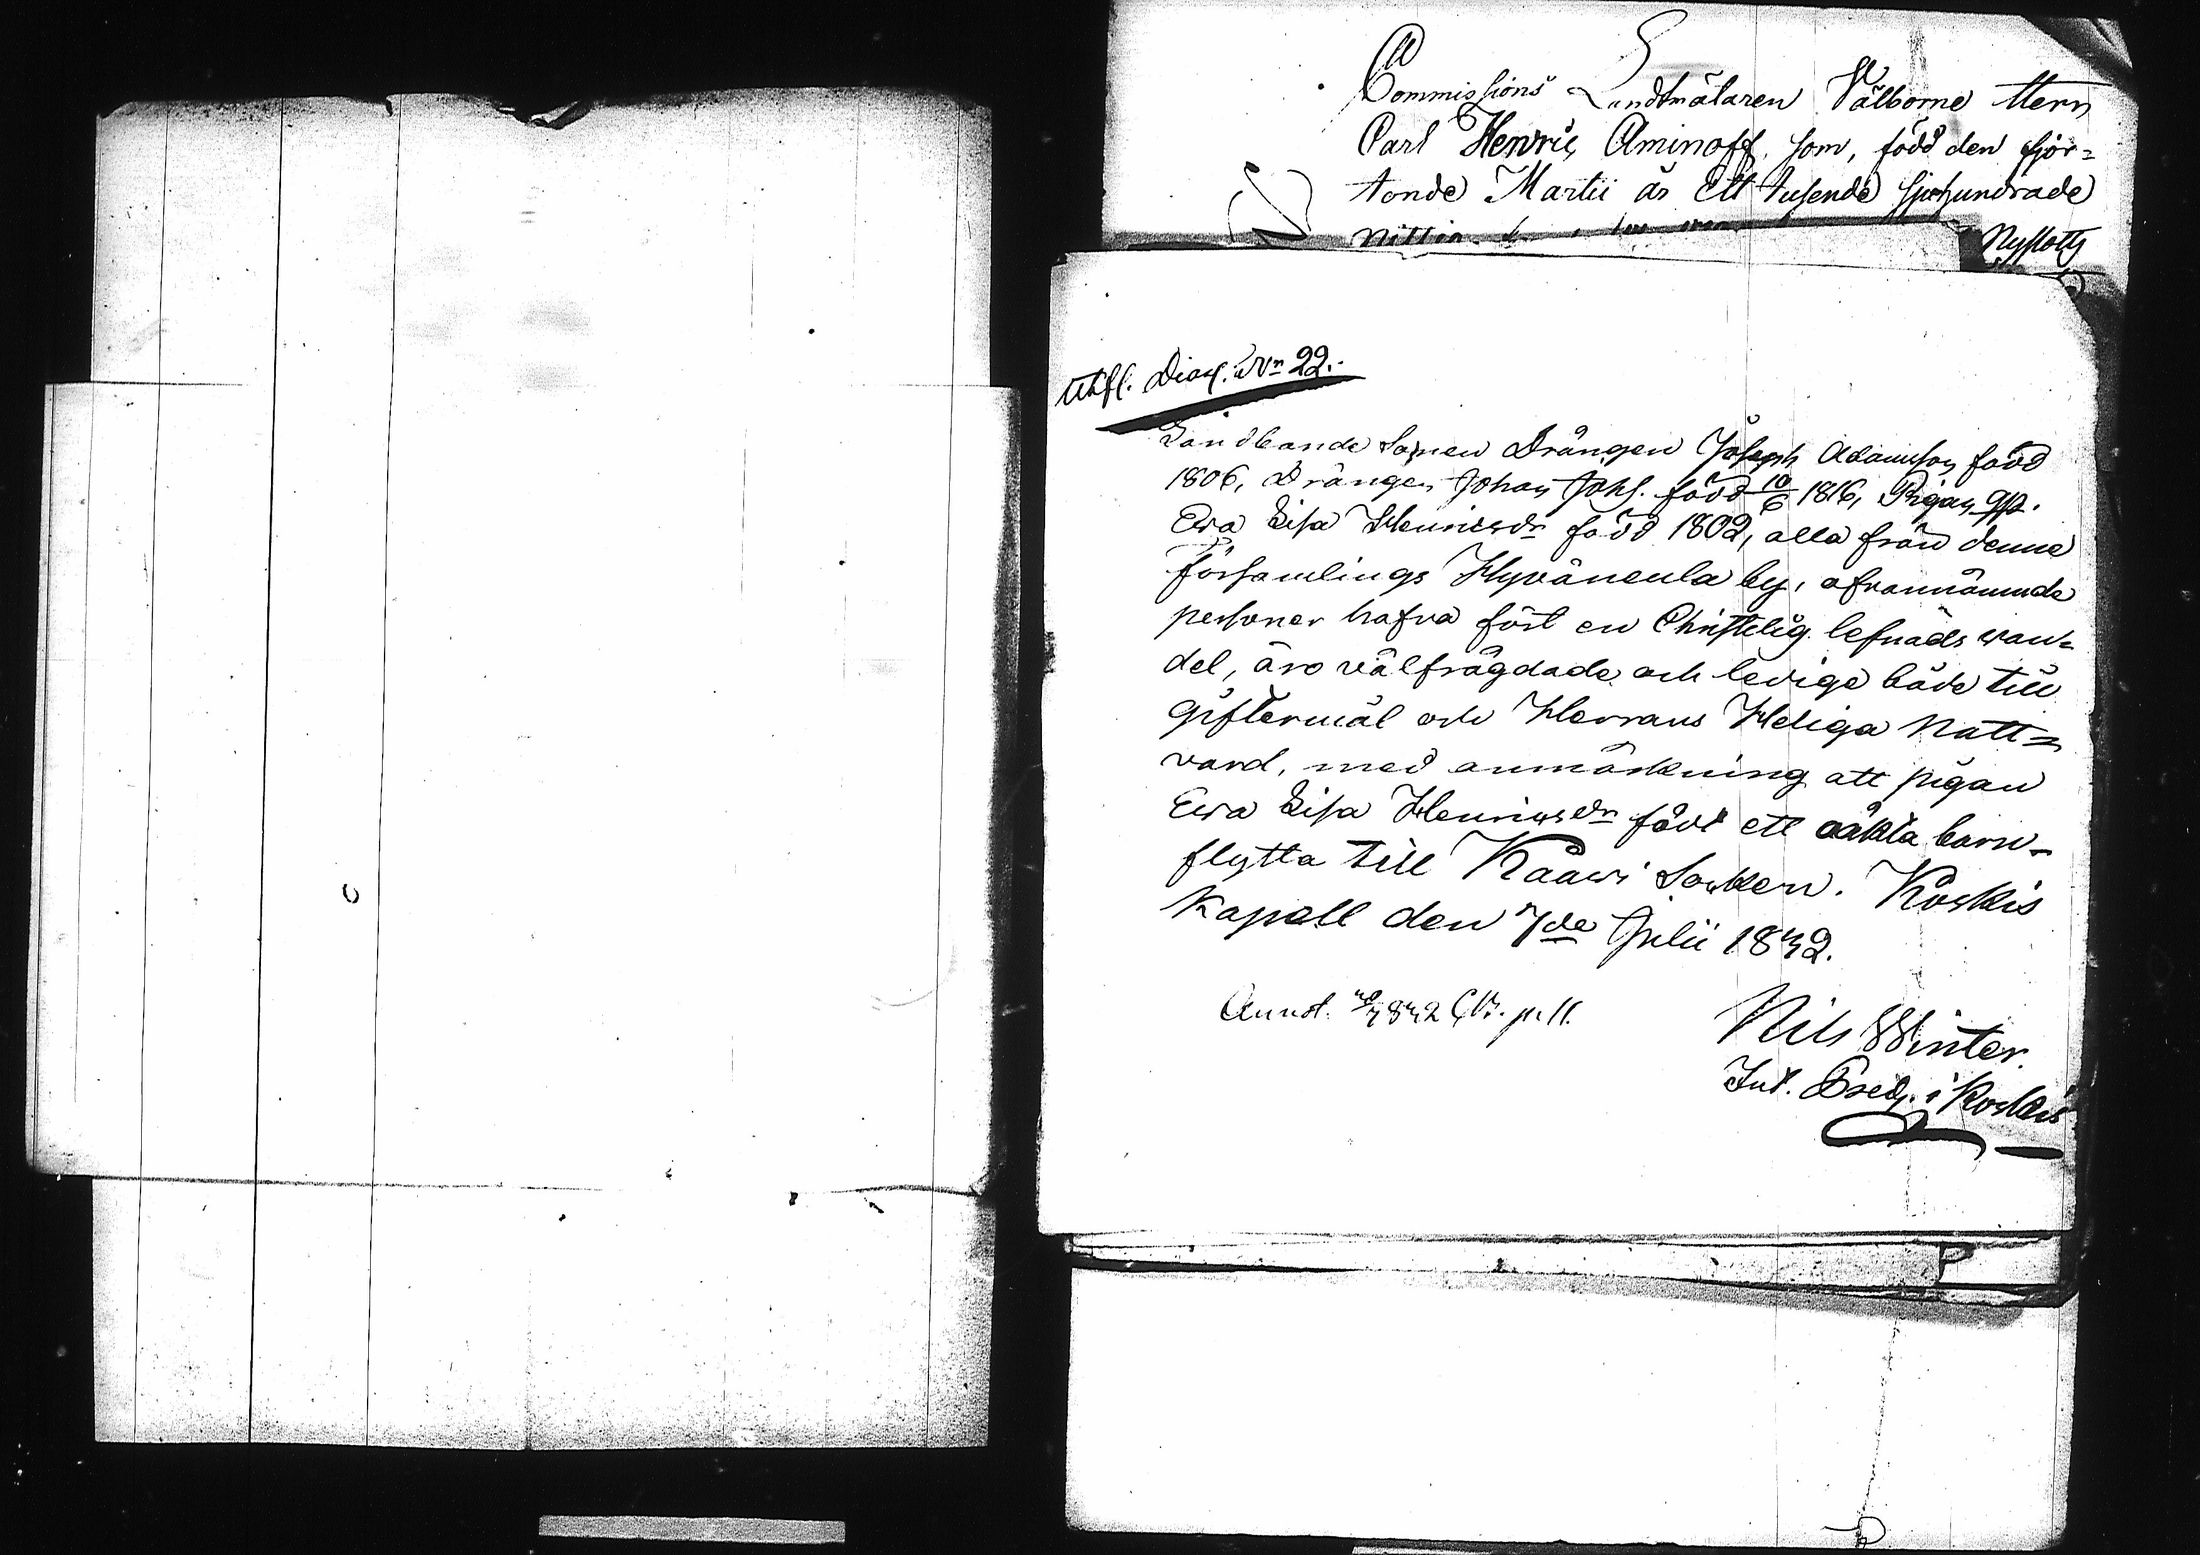 Commissions Landtmätaren Välborne Herr
Carl Henric Aminoff, som, född den fjor=
tonde Martii år Ett tusende sjuhundrade
Nittio
Nyslotts
Utfl. Diar. No 22.
Landbonde Sonen Drängen Joseph Adamsson född
1806, Drängen Johan Johs. född 10/6 1816, Pigan qp.
Ewa Lisa Henricsdr född 1802, alla från denne
församlings Hyväneula by, ofvannämnde
personer hafva fört en Christelig lefnads wan=
del, äro välfrägdade och ledige både till
giftermål och Herrans Heliga Natt=
vard, med anmärkning att pigan
Ewa Lisa Henricsdr födt ett oäkta barn -
flytta till Kaawi Socken. Koskis
Kapell den 7de Julii 1842.
Annot. 1842 p. 11.
Nils Winter.
Int. Pred. i Koskis
P